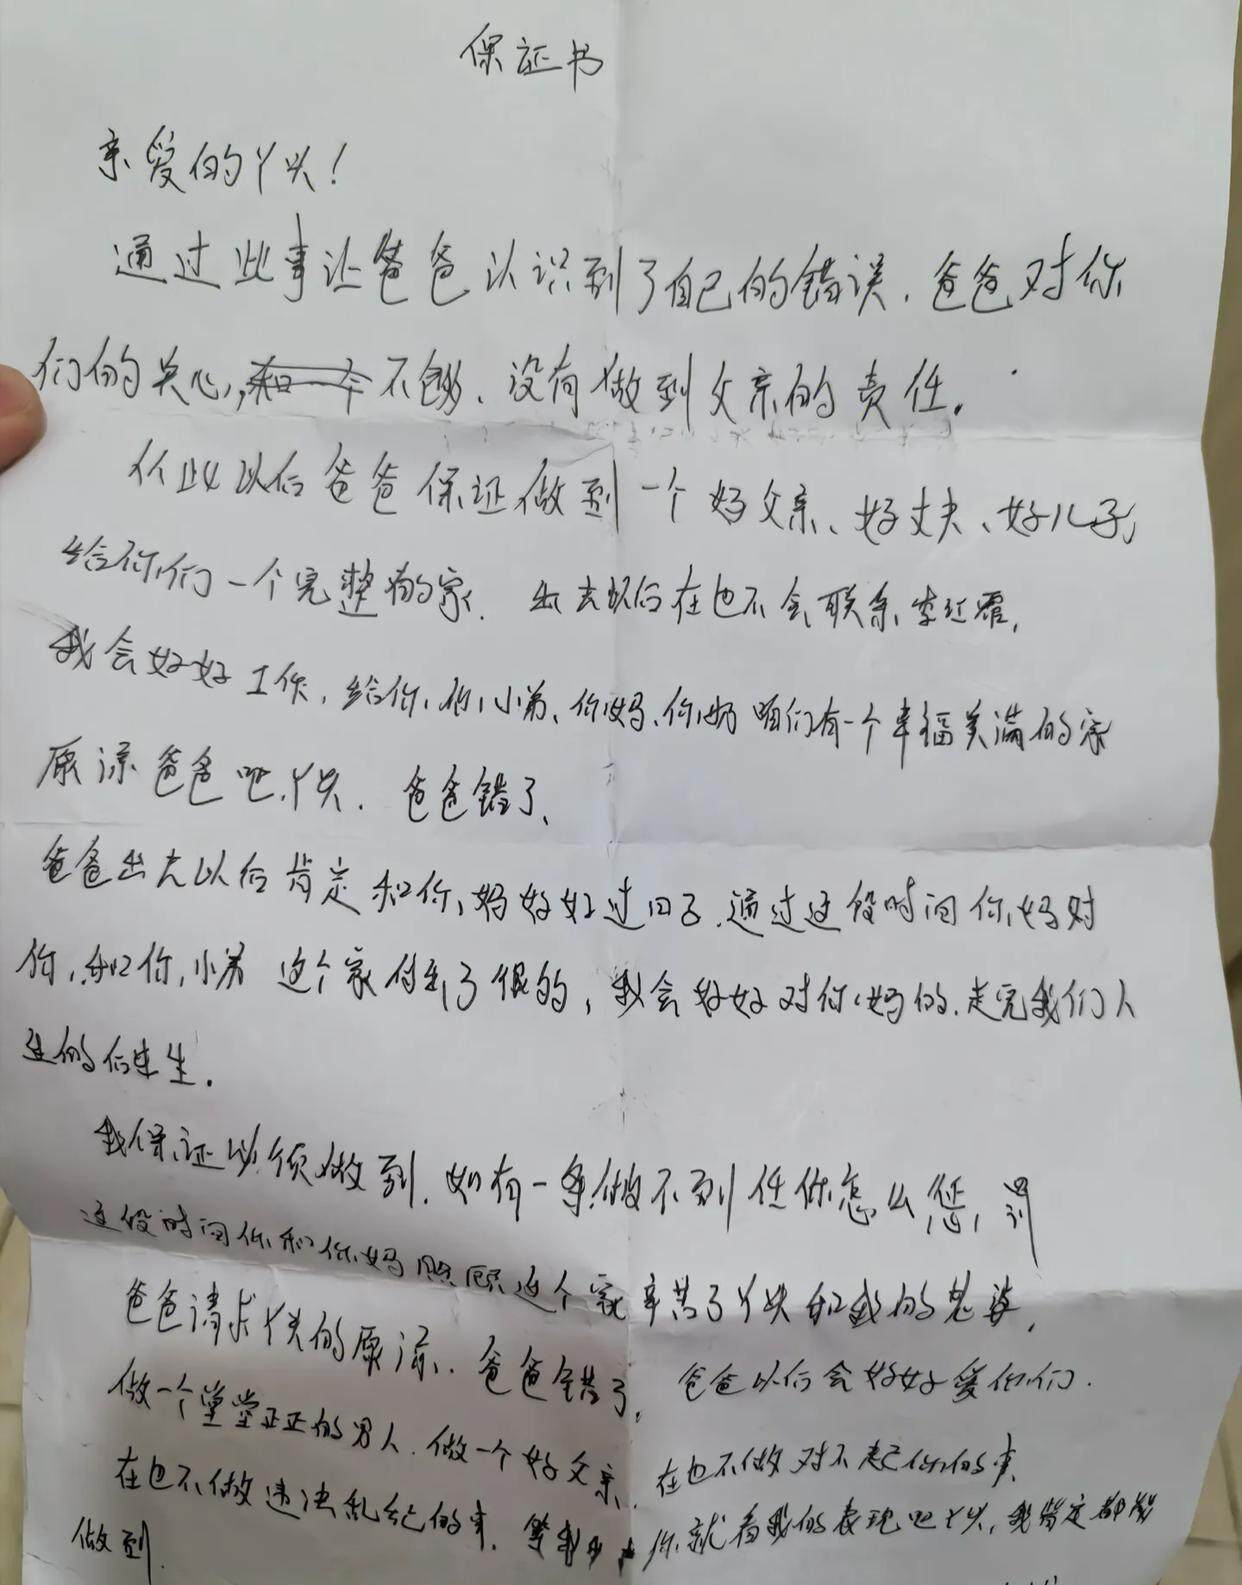 保证书
亲爱的丫头！
通过此事让爸爸认识到了自己的错误．爸爸对你
们的关心，不够．没有做到父亲的责任。
从此以后爸爸保证做到一个好父亲、好丈夫、好儿子，
给你们一个完整的家．出去以后在也不会联系李红霞，
我会好好工作，给你，小弟、你妈、你奶咱们有一个幸福美满的家
原谅爸爸吧，丫头．爸爸错了、
爸爸出去以后肯定和你妈好好过日子．通过这段时间你妈对
你，和你，小弟 这个家付出了很的，我会好好对你妈的．走完我们人
生的后半生．
我保证必须做到．如有一条做不到任你怎么惩，罚
这段时间你和你妈照顾这个家辛苦了丫头和我的老婆，
爸爸请求丫头的原谅．爸爸错了，爸爸以后会好好爱你们．
做一个堂堂正正的男人．做一个好父亲．在也不做对不起你们的事．
在也不做违法乱纪的事．等我 你就看我的表现吧丫头，我肯定都能
做到．